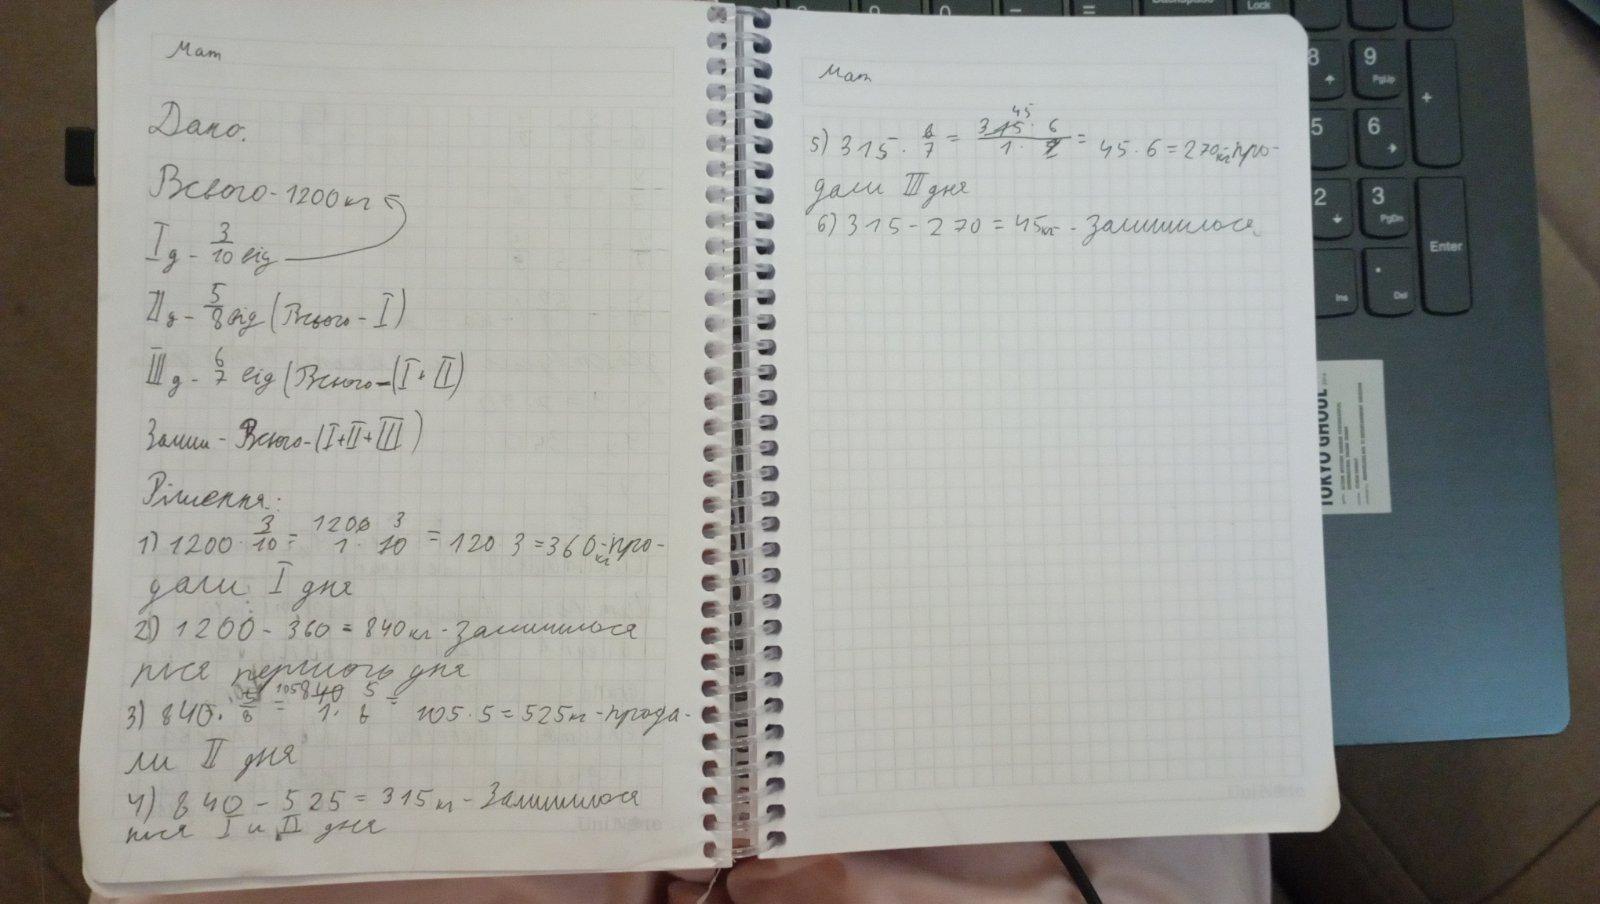 Мат
Дано:
Всього - 1200 кг
I д - 3/10 від
II д - 5/8 від (Всього - I)
III д - 6/7 від (Всього - (I + II)
Залиш - Всього - (I+II+III)
Рішення:
1) 1200 · 3/10 = 1200 3 / 1 · 10 = 120 3 = 360 кг - про-
дали I дня
2) 1200 - 360 = 840 кг - Залишилося
пися першого дня
3) 840 · 5/8 = 105 840 5 / 1 · 8 = 105 · 5 = 525 кг - прода-
ли II дня
4) 840 - 525 = 315 кг - Залишилося
пися I и II дня
UniNote
Мат
5) 315 · 6/7 = 45 315 · 6 / 1 · 7 = 45 · 6 = 270 кг - про-
дали III дня
6) 315 - 270 = 45 кг - Залишилося
UniNote
Backspace
Lock
8
9
PgUp
+
5
6
2
3
PgDn
Enter
Ins
.
Del
TOKYO GHOUL